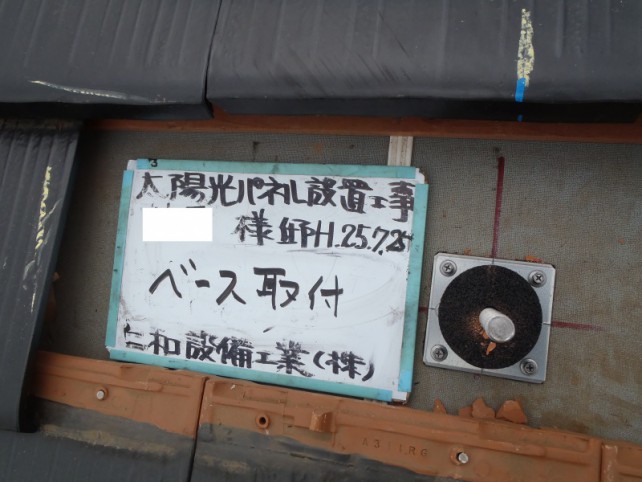 太陽光パネル設置工事
様邸 H.25.7.25
ベース取付
仁和設備工業(株)
A311RG